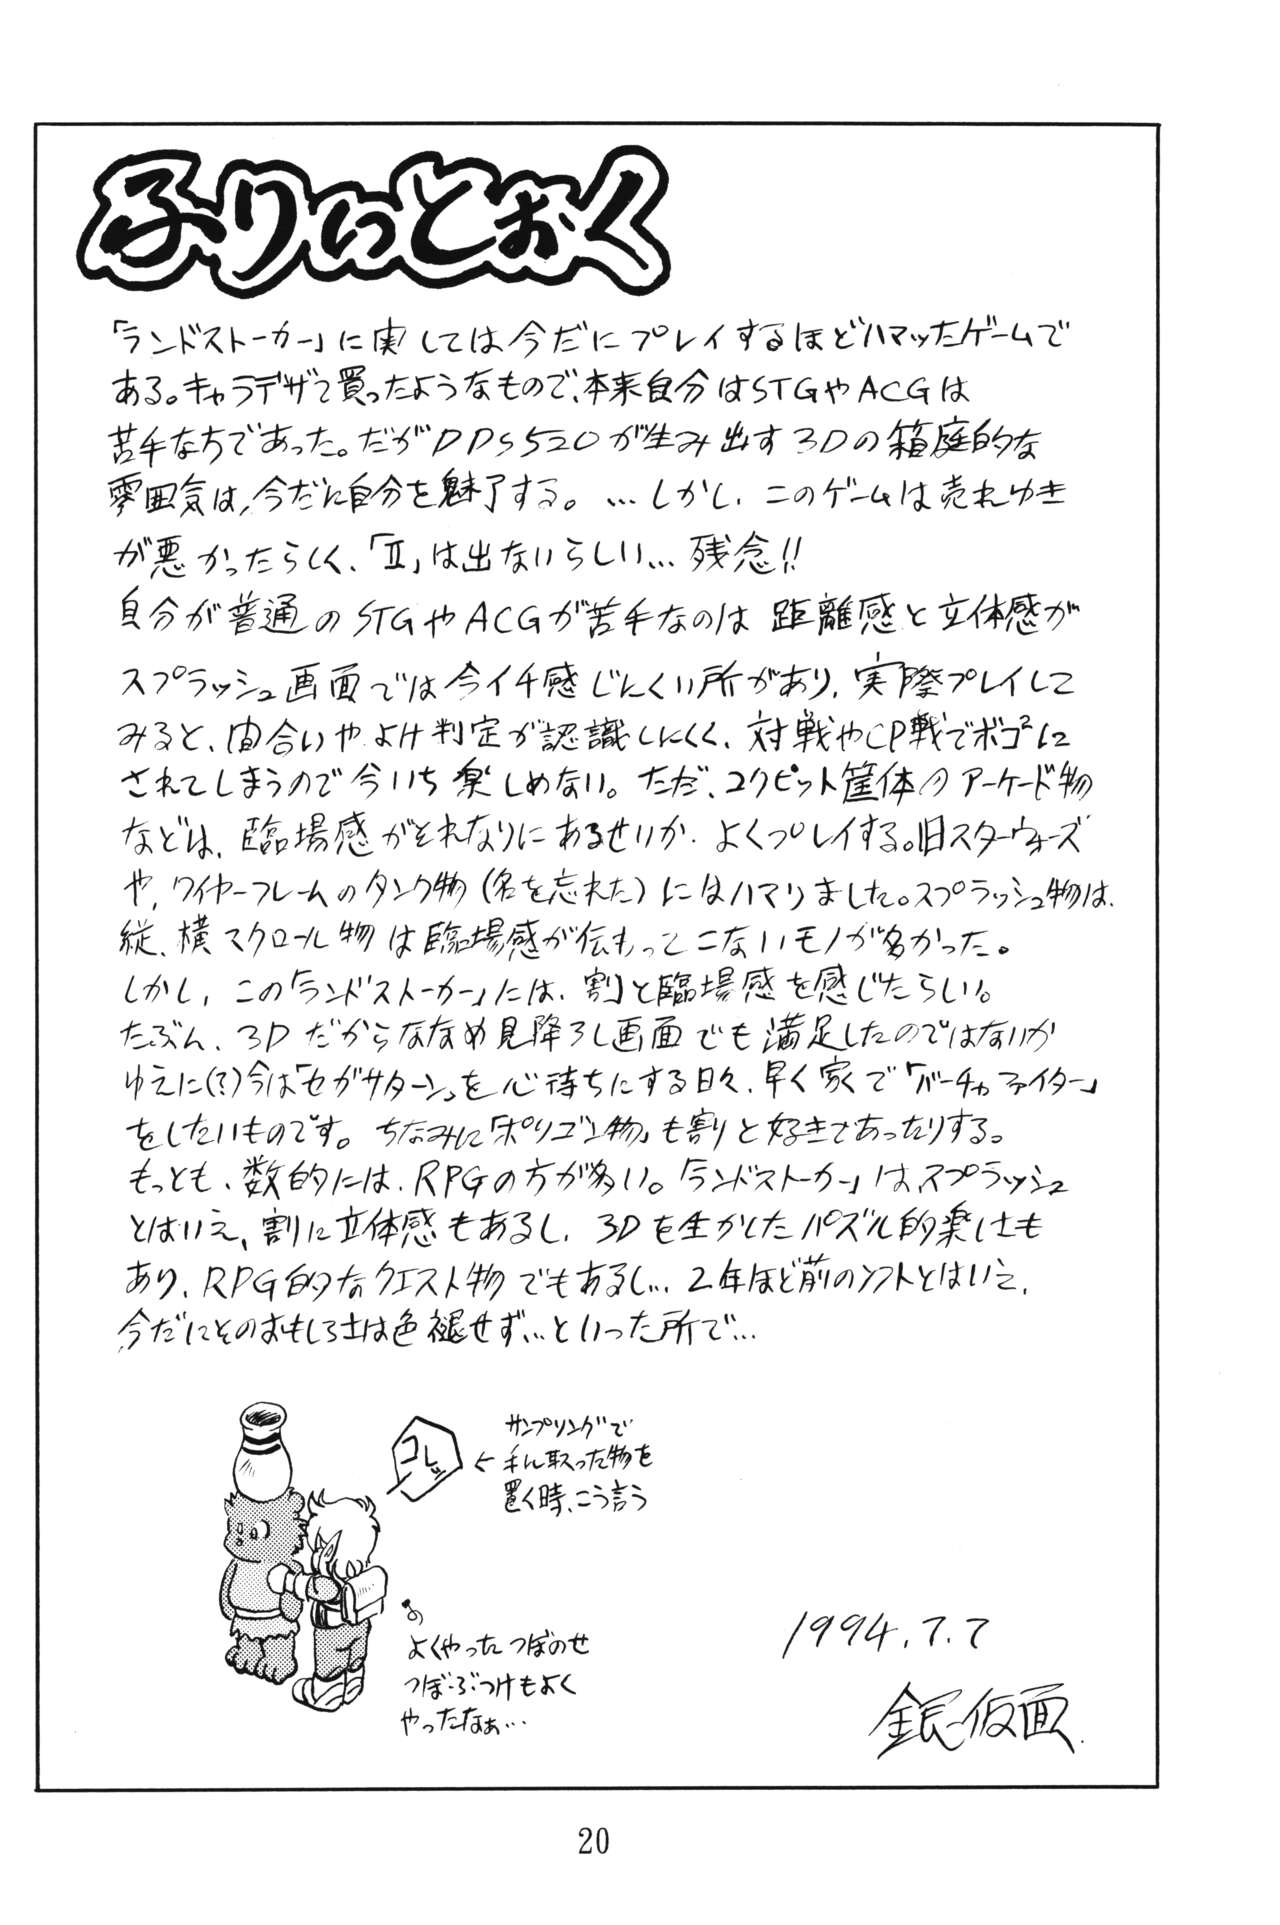 ふりいとおく
「ランドストーカー」に実しては今だにプレイするほどハマッたゲームで
ある。キャラデザで買ったようなもので、本来自分はSTGやACGは
苦手な方であった。だがDDS520が生み出す3Dの箱庭的な
雰囲気は、今だに自分を魅了する。…しかし、このゲームは売れゆき
が悪かったらしく、「Ⅱ」は出ないらしい…残念!!
自分が普通のSTGやACGが苦手なのは距離感と立体感が
スプラッシュ画面では今イチ感じんくい所があり、実際プレイして
みると、間合いやよけ判定が認識しにくく、対戦やCP戦でボコ²に
されてしまうので今いち楽しめない。ただ、コクピット筐体のアーケード物
などは、臨場感がそれなりにあるせいか、よくプレイする。旧スターウォーズ
や、ワイヤーフレームのタンク物(名を忘れた)にはハマりました。スプラッシュ物は、
縦、横スクロール物は臨場感が伝わってこないモノが多かった。
しかし、この「ランドストーカー」には、割と臨場感を感じたらしい。
たぶん、3Dだからななめ見降ろし画面でも満足したのではないか
ゆえに(?)今は「セガサターン」を心待ちにする日々、早く家で「バーチャファイター」
をしたいものです。ちなみに「ポリゴン物」も割と好きであったりする。
もっとも、数的には、RPGの方が多い。「ランドストーカー」は、スプラッシュ
とはいえ、割に立体感もあるし、3Dを生かしたパズル的楽しさも
あり、RPG的なクエスト物でもあるし…2年ほど前のソフトとはいえ、
今だにそのおもしろさは色褪せず…といった所で…
コレッ
サンプリングで
手に取った物を
置く時、こう言う
よくやったつぼのせ
つぼぶつけもよく
やったなぁ…
1994.7.7
銀仮面
20